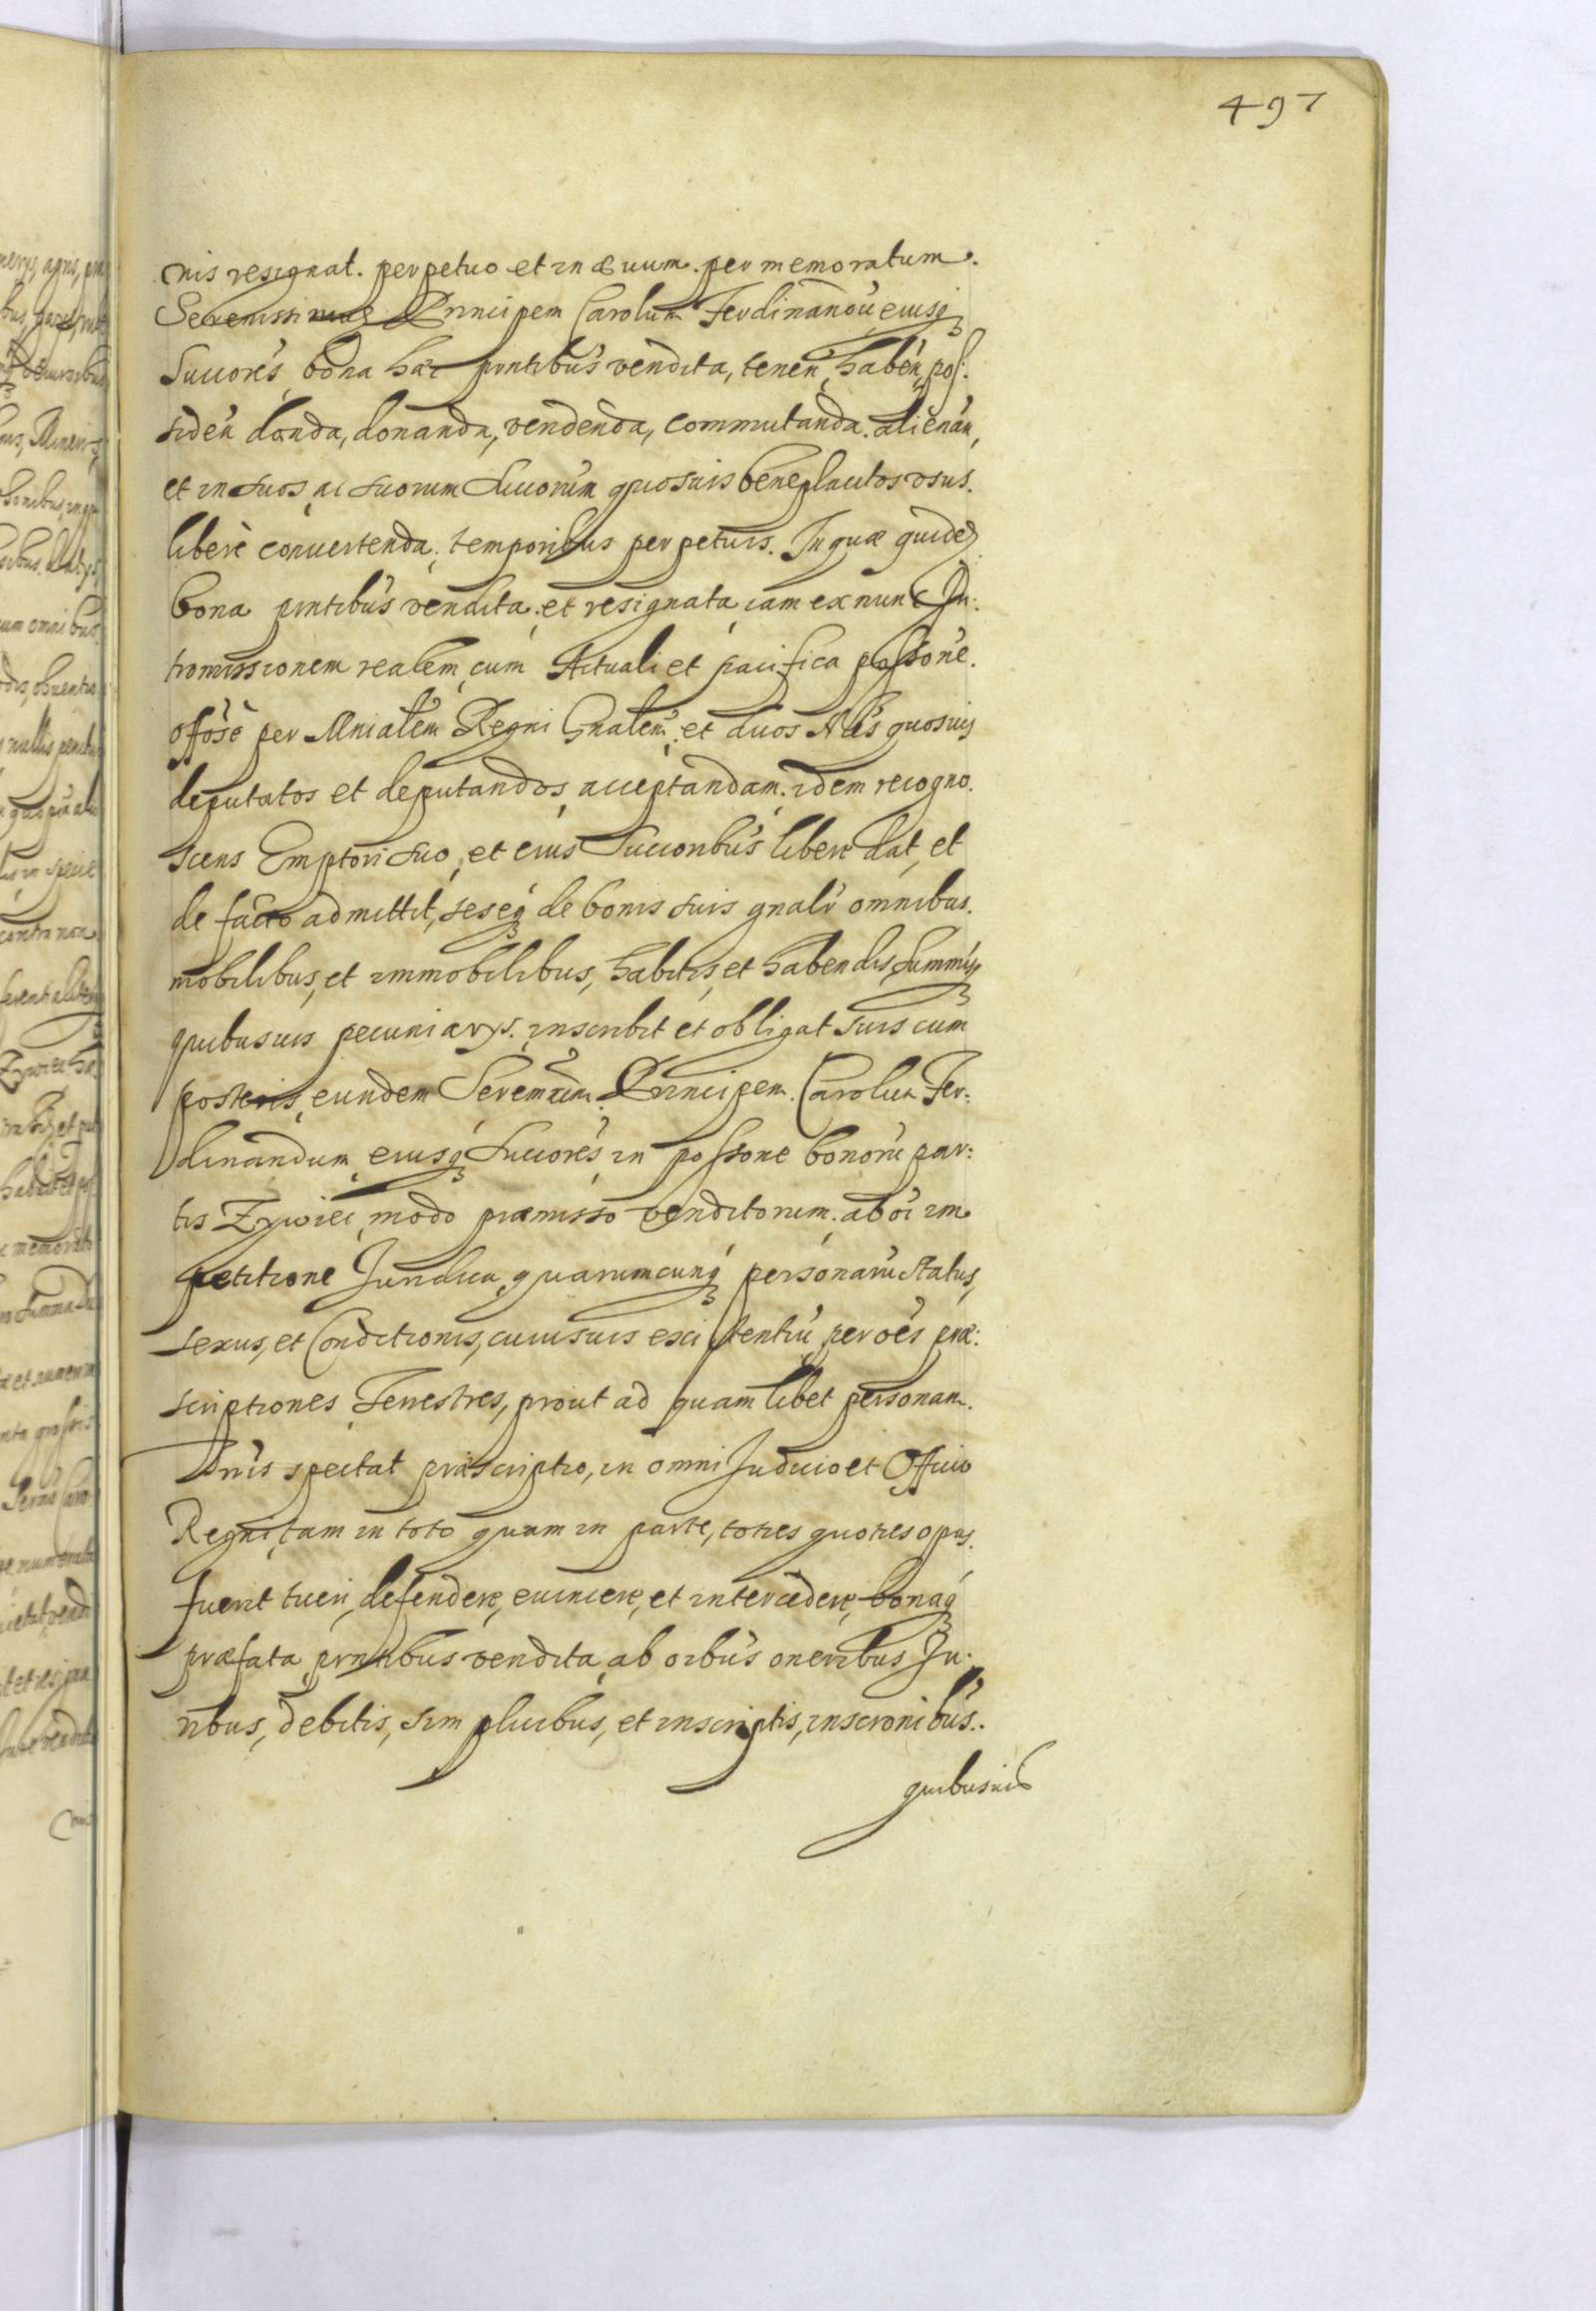 497
nis resignat. perpetuo et in æuum. per memoratum.
Serenissimum Principem Carolum Ferdinandũ eiusq
Succorẽs bona hæc pñtibus vendita, tenen, haben, pos:
siden danda, donanda, vendenda, commutanda. alienan,
et in suos ac suorum Succorũm quosuis beneplacitos vsus.
liberè conuertenda, temporibus perpetuis. In quæ quidem
bona pñtibus vendita et resignata, iam ex nunc In:
tromissionem realem, cum Actuali et pacifica possone.
offose per Mnialem Regni Gnalem, et duos Nles quosuis
deputatos et deputandos, acceptandam, idem recogno.
scens Emptori suo, et eius Succoribus libere dat, et
de facto admittit, seseq de bonis suis gnalr omnibus.
mobilibus, et immobilibus, habitis, et habendis, summisq
quibusuis pecuniarys. inscribit et obligat suis cum
posteris, eundem Seremum Principem. Carolum Fer:
dinandum, eiusq Succorẽs in possone bonorũ par:
tis Zywiec, modo præmisso venditorum, ab oi im
petitione Juridica, quarumcunq personarũ status,
sexus, et Conditionis, cuiusuis existentiũ, per oes præ:
scriptiones Terrestres, prout ad quamlibet personam.
Iuris spectat præscriptio, in omni Judicio et Officio
Regni, tam in toto quam in parte, toties quoties opus.
fuerit tueri, defendere, euincere, et intercedere, bonaq
præfata pñtibus vendita, ab oibus oneribus Ju:
ribus, debitis, simplicibus, et inscriptis, inscronibus..
quibusuis